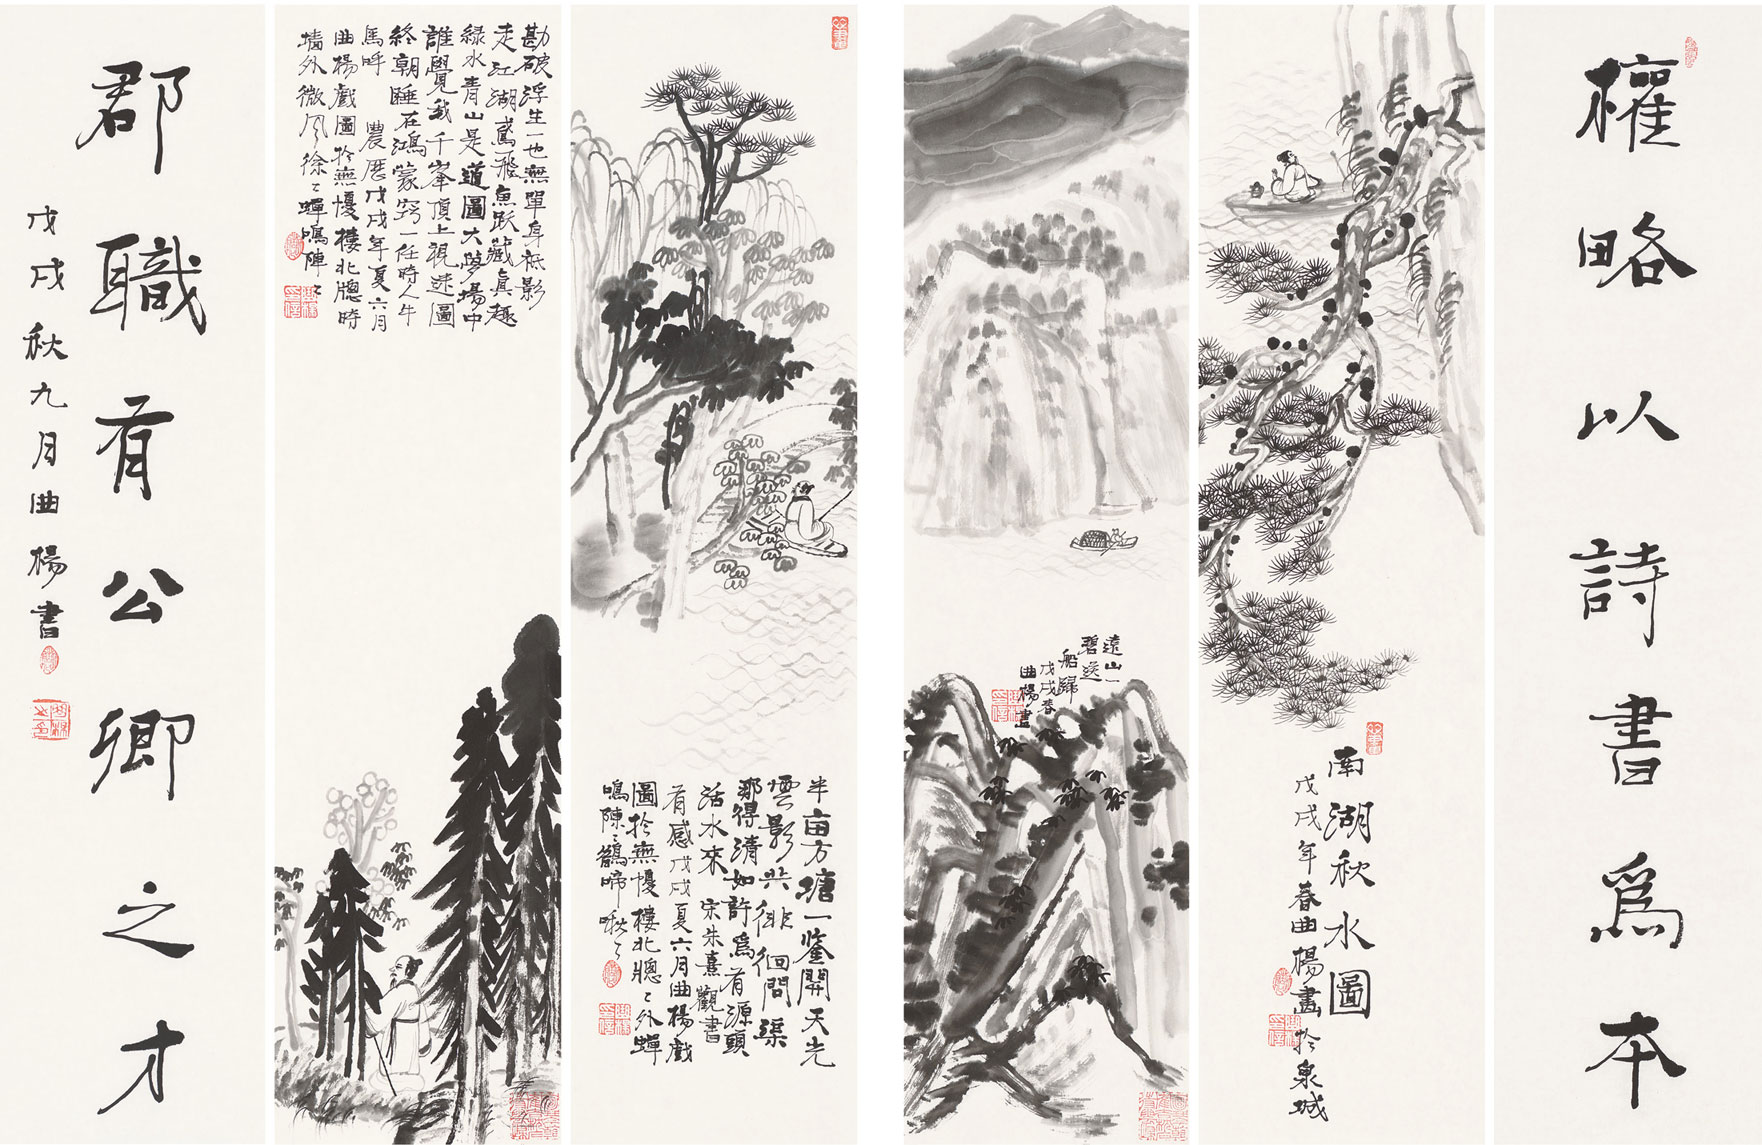 權略以詩書爲本
南湖秋水圖
戊戌年春曲楊畫於泉城
遠山一
碧送
船歸
戊戌春
曲楊畫
半亩方塘一鉴開天光
雲影共徘徊問渠
那得清如許爲有源頭
活水來 宋朱熹觀書
有感戊戌夏六月曲楊戲
圖於無憂樓北牕〻外蟬
鳴陣〻鶴啼啾〻
勘破浮生一也無單身祗影
走江湖鳶飛魚跃藏真趣
緑水青山是道圖大夢場中
誰覺我千峯頂上視迷圖
終朝睡在鴻蒙竅一任時人牛
馬呼 農歷戊戌年夏六月
曲楊戲圖於無憂樓北牕時
墻外微风徐〻蟬鳴陣〻
郡職有公卿之才
戊戌秋九月曲楊書